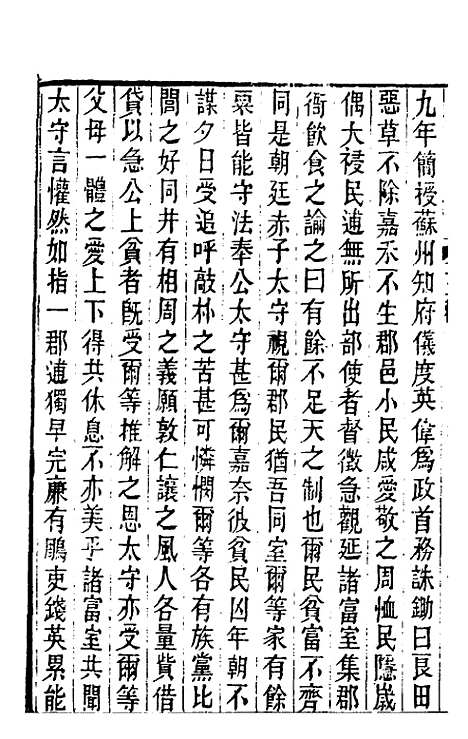 九年簡授蘇州知府儀度英偉爲政首務誅鋤曰良田
惡草不除嘉禾不生郡邑小民咸愛敬之周恤民隱歲
偶大祲民逋無所出部使者督徵急觀延諸富室集郡
衙飲食之論之曰有餘不足天之制也爾民貧富不齊
同是朝廷赤子太守視爾郡民猶吾同室爾等家有餘
粟皆能守法奉公太守甚爲爾嘉奈彼貧民凶年朝不
謀夕日受追呼敲朴之苦甚可憐憫爾等各有族黨比
閭之好同井有相周之義願敦仁讓之風人各量貲借
貸以急公上貧者旣受爾等推解之恩太守亦受爾等
父母一體之愛上下得共休息不亦美乎諸富室共聞
太守言懽然如指一郡逋獨早完廉有鵰吏錢英累能